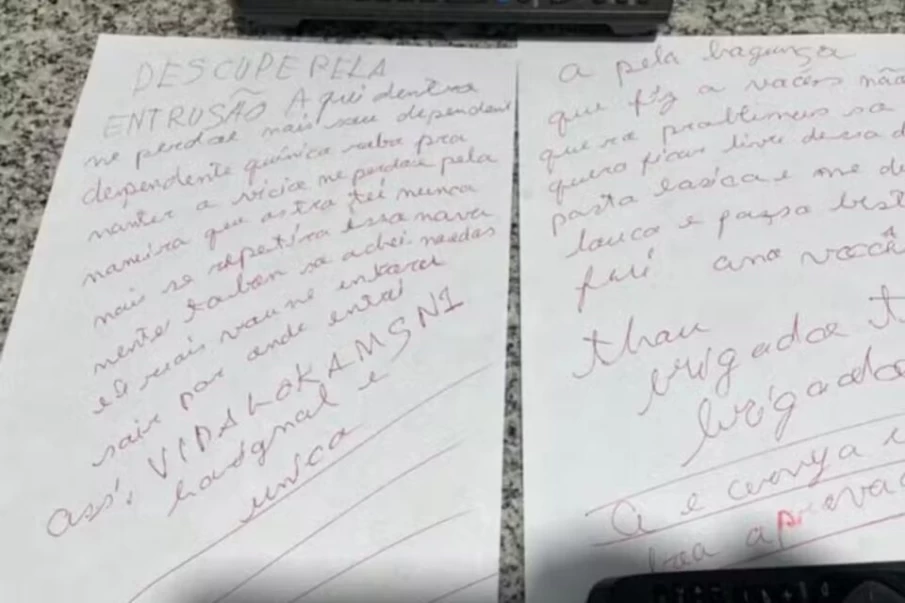 DESCUPE PELA
ENTRUSÃO A qui dentra
me perdoe mais sou dependent
despendente química raba pra
manter a vicia me perdoe pela
maneira que astra tei nunca
mais se repetíra essa nava
mente taban so achei moedas
eli mais vaume enkarar
sair por onde entrei
ass: VIDA LOKA MSN1
e
unica
a pela bagunça
que fiz a vacês não
quera problemas so
quero ficar livre dessa d
pasta basica e me de
louco e passo
fui ano você
thau
brigadoa t
brigadoa
a e cerveja
boa aprovad